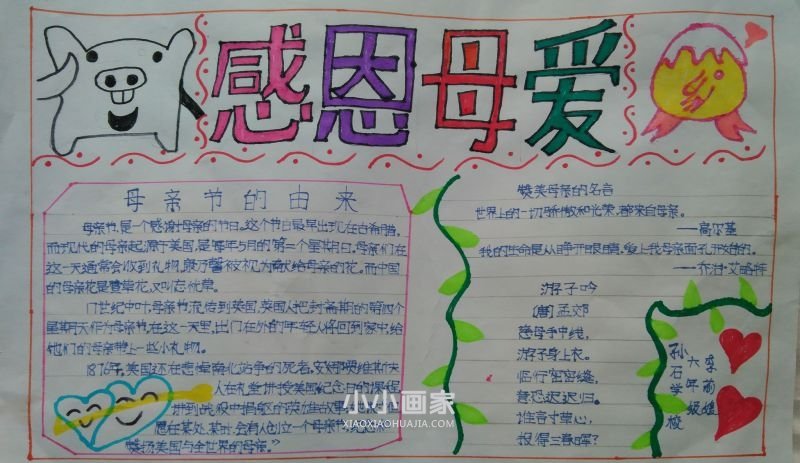 感恩母爱
母亲节的由来
母亲节,是一个感谢母亲的节日。这个节日最早出现在古希腊,
而现代的母亲起源于美国,是每年5月的第二个星期日。母亲们在
这一天通常会收到礼物,康乃馨被视为献给母亲的花。而中国
的母亲花是萱草花,又叫忘忧草。
17世纪中叶,母亲节流传到英国,英国人把封斋期的第四个
星期天作为母亲节。在这一天里,出门在外的年轻人将回到家中,给
他们的母亲带上一些小礼物。
1876年,美国还在悲悼南北战争的死者。安娜
人在礼堂讲授美国纪念日的课程,
讲到战役中捐躯的英雄故事
愿在某处、某时,会有人创立一个母亲节,纪念
赞扬美国与全世界的母亲。"
赞美母亲的名言
世界上的一切骄傲和光荣,都来自母亲。
——高尔基
我的生命是从睁开眼睛,爱上我母亲面孔开始的。
——乔治·艾略特
游子吟
唐 孟郊
慈母手中线,
游子身上衣。
临行密密缝,
意恐迟迟归。
谁言寸草心,
报得三春晖?
孙石学校
六年级
李前
小小画家
XIAOXIAOHUAJIA.COM